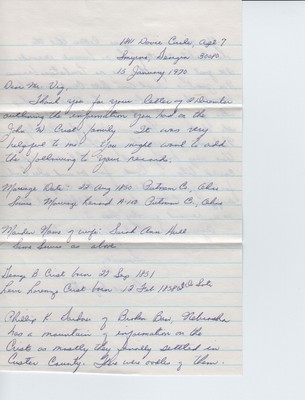 Apt 7
Smyrna, Georgia 30080
15 January 1970
Dear Mr. Vig,
Thank you for your letter of 2 December
outlining the information you had on the
John W Crist family. It was very
helpful to me. You might want to add
the following to your records.
Marriage Date: 22 Aug 1850 Putnam Co, Ohio
Source Marriage Record Putnam Co, Ohio
Maiden Name of wife: Sarah Ann Hall
Source as above
George B Crist born 23 Sep 1851
Lorenzo Crist born 12 Feb
Phillip K. Gardner of Broken Bow, Nebraska
has a mountain of information on the
Crists as mostly they finally settled in
Custer County. There was oodles of them.